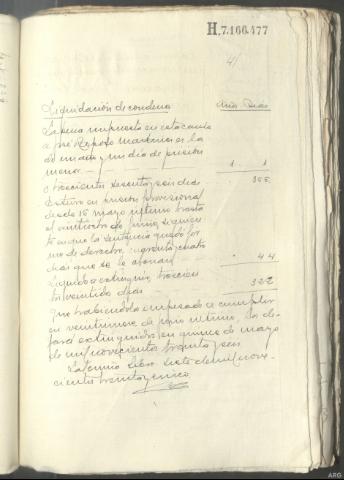 H.7.166.477
4/
Liquidación de condena Años Días
La pena impuesta en esta causa
a José Raposo Martínez es la
de un año y un día de prisión
menor 1 . 1
o trescientos sesenta y seis días . 366
Estuvo en prisión provisional
desde 16 mayo último hasta
el veintiocho de junio siguien
te en que la sentencia quedó fir
me de derecho, cuarenta y cuatro
días que se le abonan . 44
Liquido a extinguir, trescien
tos veintidós días 322
Que habiéndola empezado a cumplir
en veintinueve de junio último, la de
jará extinguida en quince de mayo
de mil novecientos treinta y seis
siete de mil nove
cientos treinta y cinco
ARG